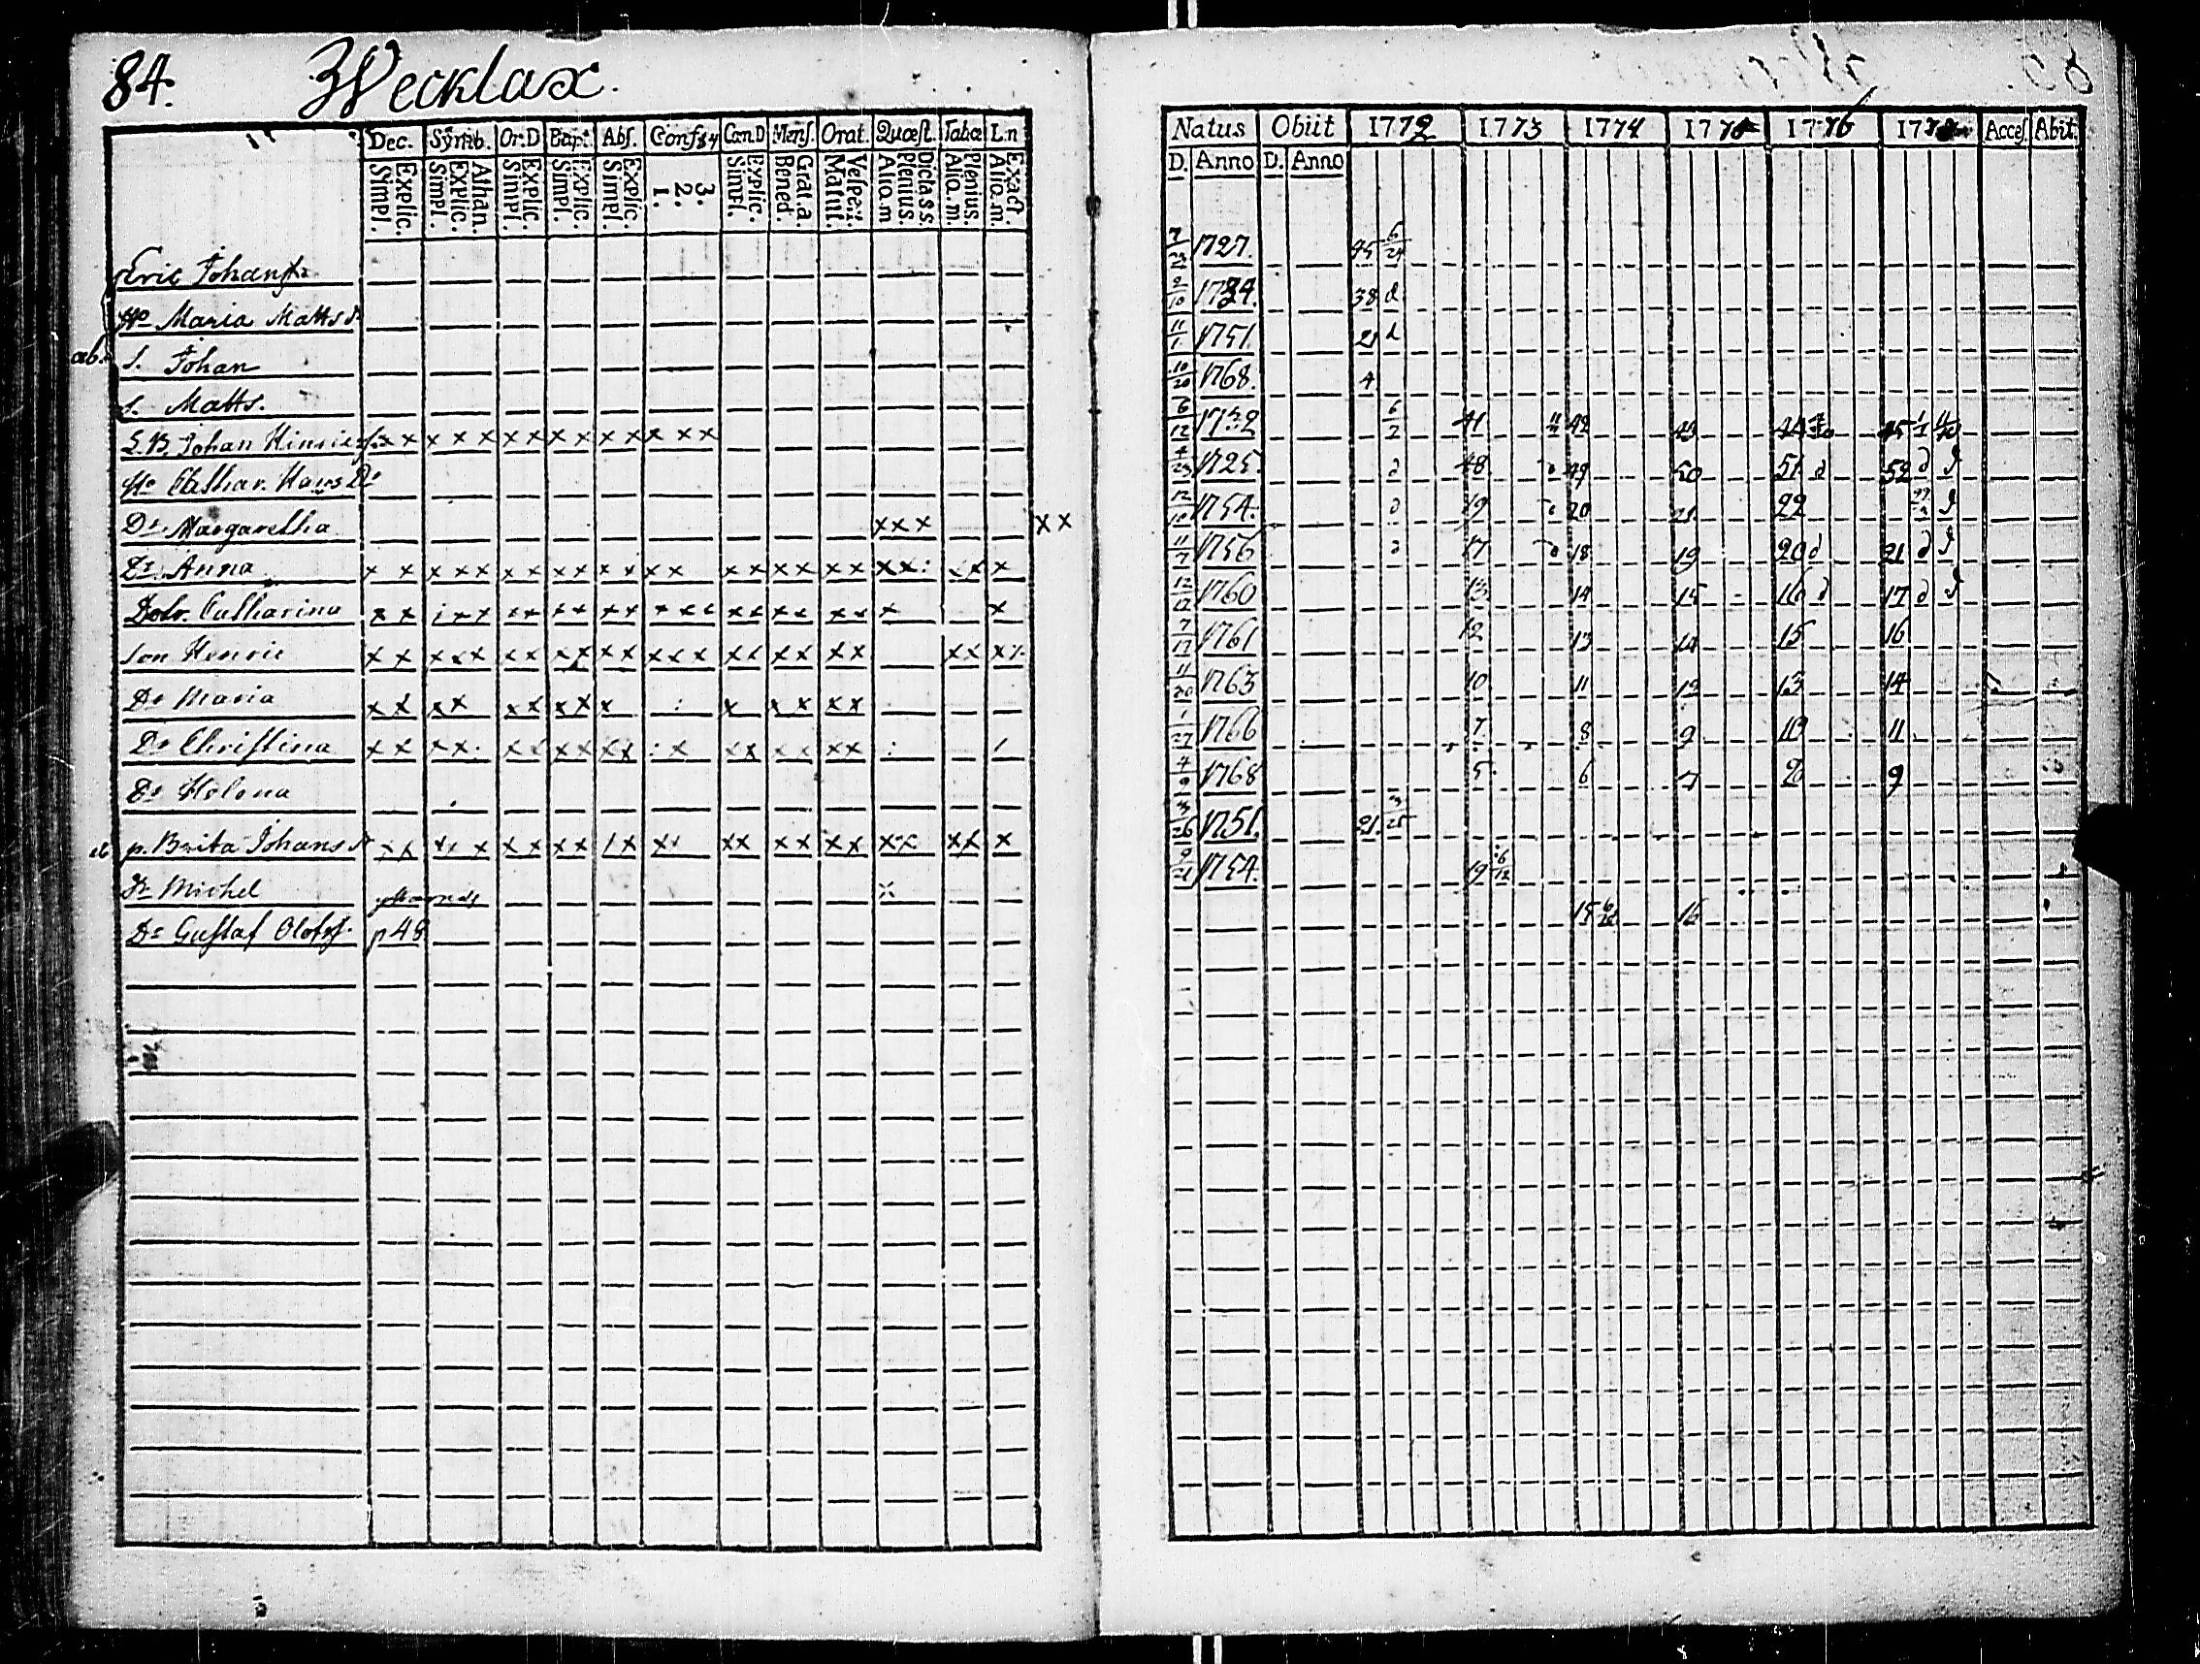 84. Wecklax.
Dec. Symb. Or.D Bapt. Abſ. Confs Can.D Menſ. Orat. Quæſt. Tabæ L.n
Explic. Simpl. Athan. Explic. Simpl. Explic. Simpl. Explic. Simpl. Explic. Simpl. 3. 2. 1. Explic. Simpl. Grat.a. Bened. Veſpert. Matut. Dicta s.s. Plenius. Alio.m Plenius. Alio.m. Exact. Alio.m.
Eric Johanſs
Ho Maria Matts D.
ab. S. Johan
S. Matts.
L.B. Johan Hinricſ. x x x x x x x x x x x x x x x
Ho Cathar. Hans Dr
Dr. Margaretha x x x x x
Dr. Anna x x x x x x x x x x x x x x x x x x x x x : x x x
Dotr. Catharina x x : x x x x x x x x x x x x x x x x x x x
son Henric x x x x x x x x x x x x x x x x x x x x x x x x
Dr Maria x x x x x x x x x : x x x x x
Dr Christina x x x x x x x x x x : x x x x x x x :
Dr Helena
p. Brita Johans Dr x x x x x x x x x x x x x x x x x x x x x x x x x
Dr Michel x
Dr Gustaf Olofsſ. p 48
Natus Obiit 1772 1773 1774 1775 1776 177 Acceſ. Abit.
D. Anno D. Anno
7/2 1727. 45 6/24
2/10 1734. 38 d
11/1 1751. 21 d
10/20 1768. 4
6/12 1732 6/2 41 42 43 44 45
4/23 1725. d 48 d 49 50 51 d 52 d d
12/10 1754. d 19 d 20 21 22 d
11/7 1756 d 17 d 18 19 20 d 21 d d
12/12 1760 13 14 15 16 d 17 d d
7/17 1761 12 13 14 15 16
11/20 1763 10 11 12 13 14
1/27 1766 7 8 9 10 11
4/9 1768 5 6 7 8 9
3/26 1751. 21. 3/25
9/21 1754. 19 6/12
15 16